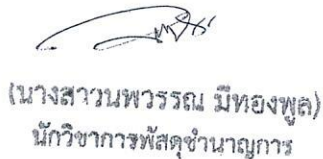 (นางสาวนพวรรณ มีทองพูล)
นักวิชาการพัสดุชำนาญการ